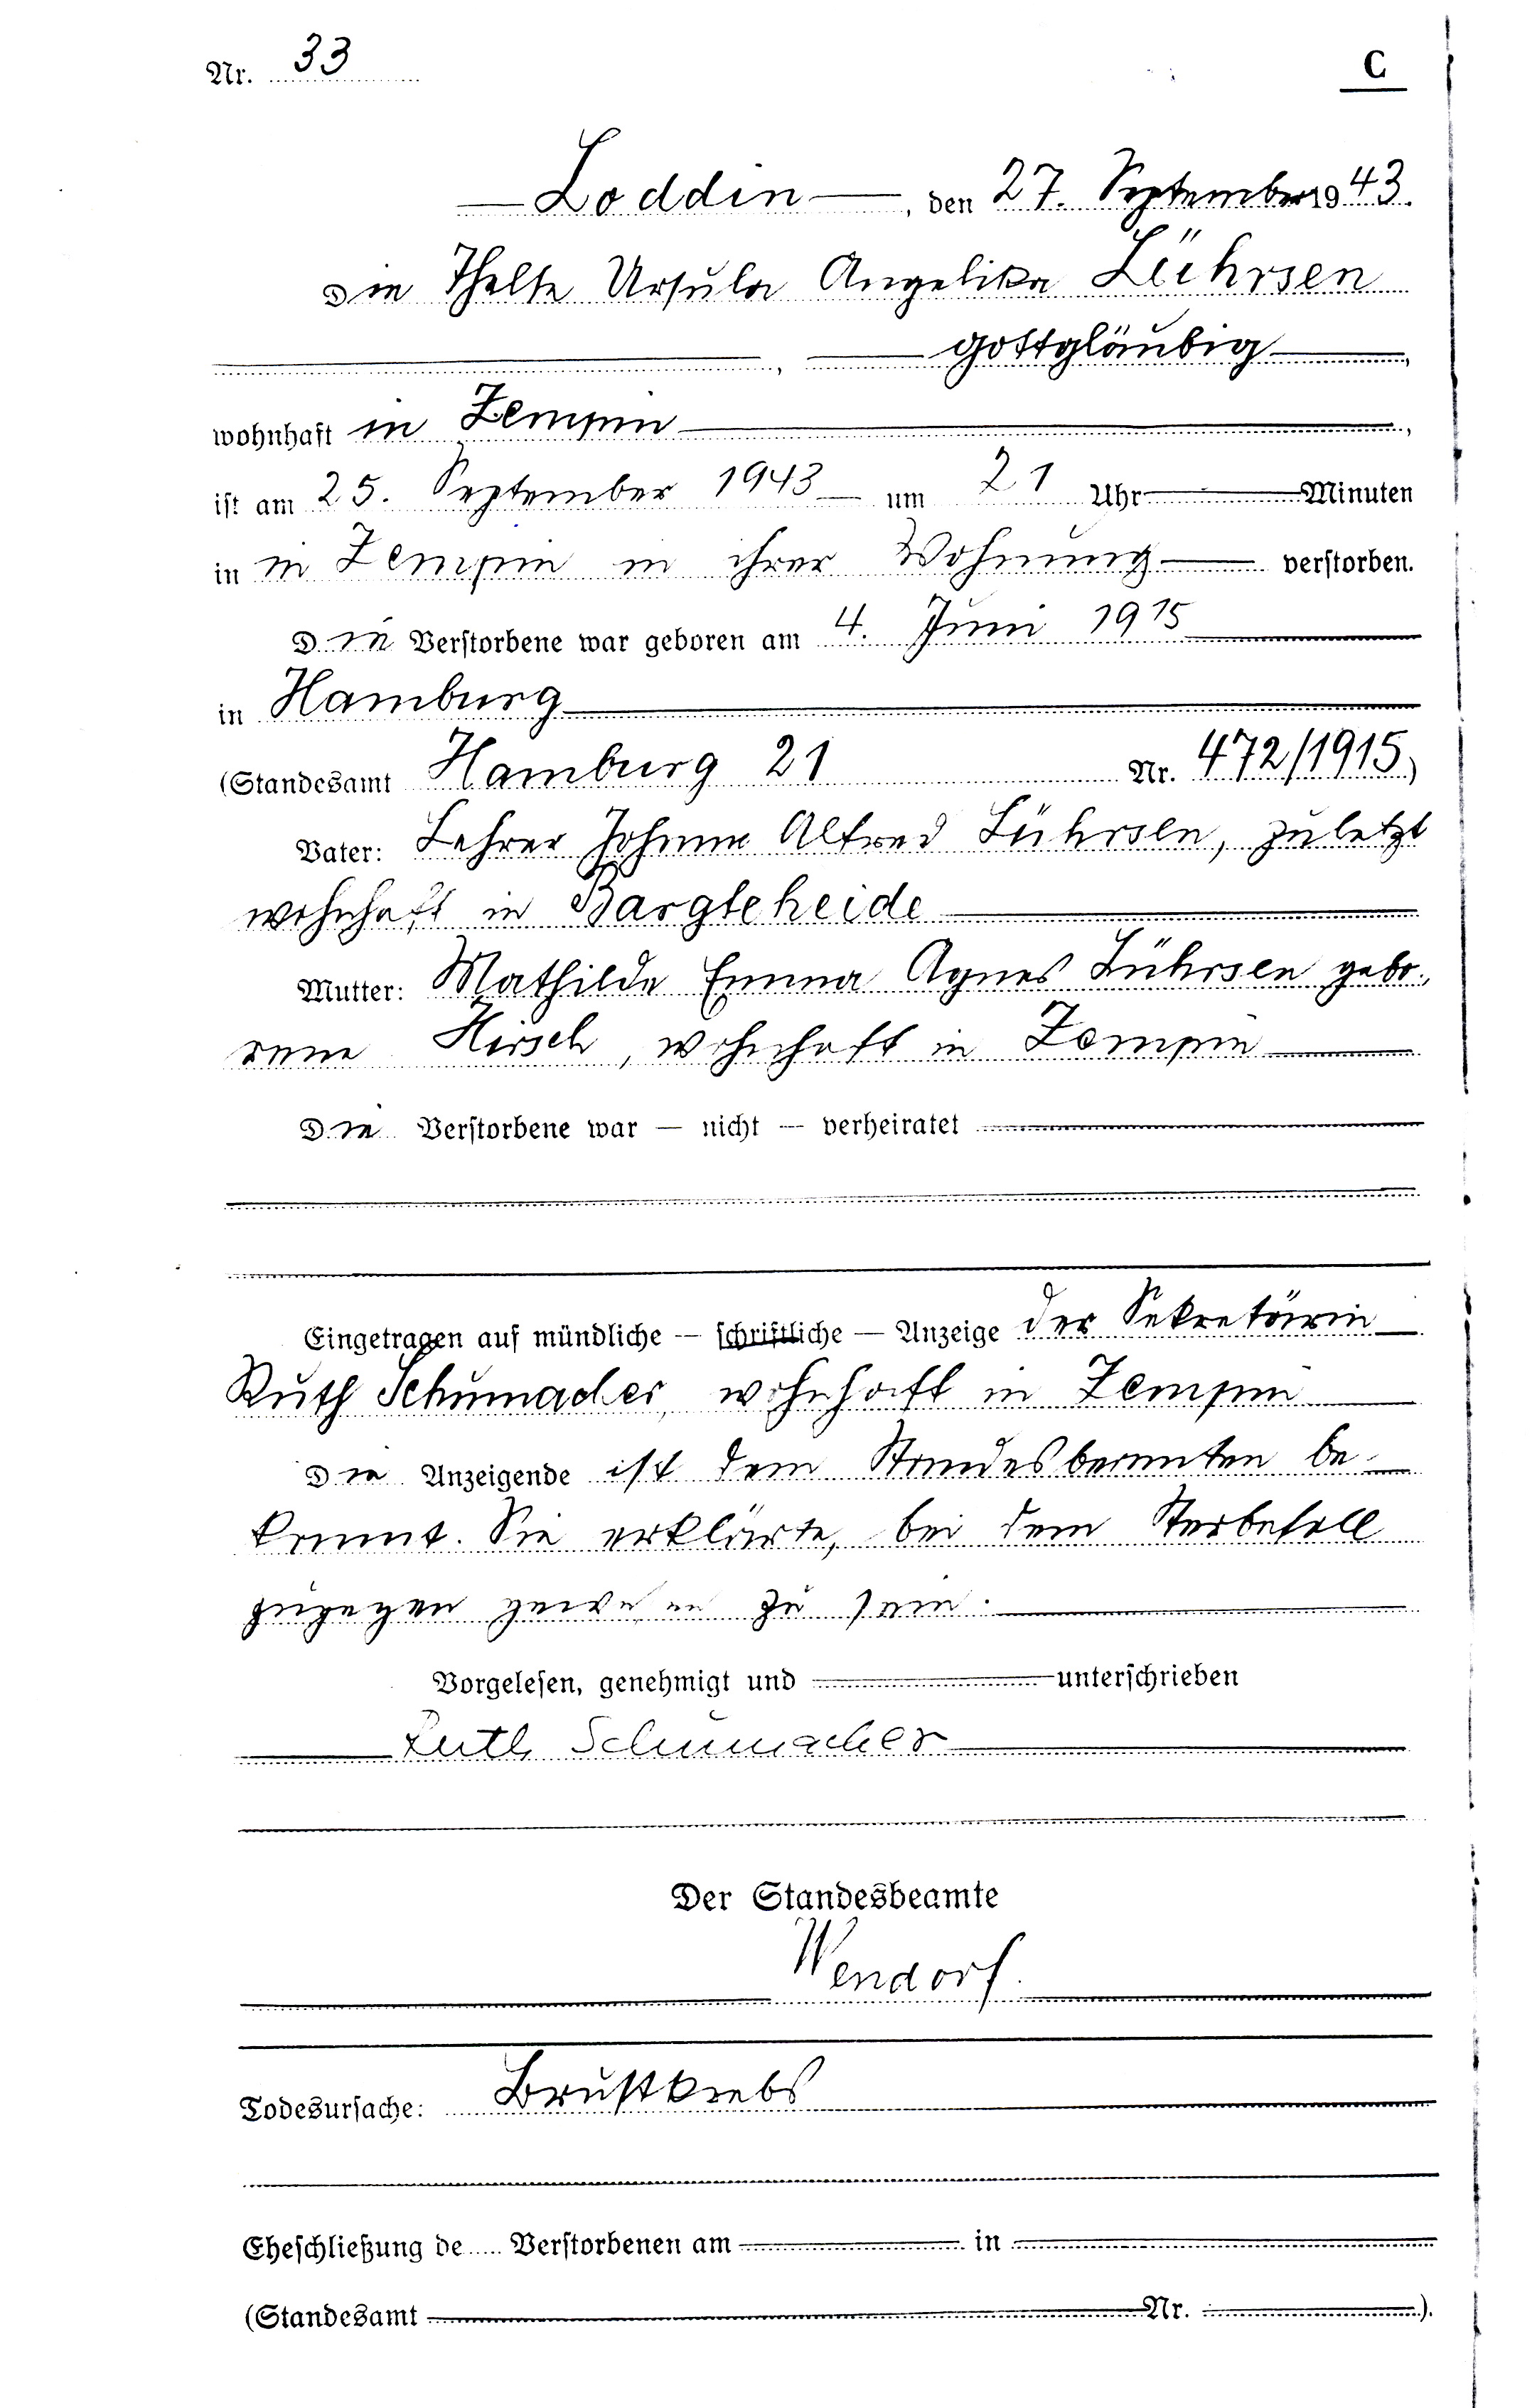 Nr. 33
C
Loddin, den 27. September 1943.
Die Thelse Ursula Angelika Lührsen
, gottgläubig,
wohnhaft in Zempin,
ist am 25. September 1943 um 21 Uhr Minuten
in in Zempin in ihrer Wohnung verstorben.
Die Verstorbene war geboren am 4. Juni 1915
in Hamburg
(Standesamt Hamburg 21 Nr. 472/1915)
Vater: Lehrer Johann Alfred Lührsen, zuletzt
wohnhaft in Bargteheide
Mutter: Mathilde Emma Agnes Lührsen gebo-
rene Hirsch, wohnhaft in Zempin
Die Verstorbene war — nicht — verheiratet
Eingetragen auf mündliche — schriftliche — Anzeige der Sekretärin
Ruth Schumacher, wohnhaft in Zempin
Die Anzeigende ist dem Standesbeamten be-
kannt. Sie erklärte, bei dem Sterbefall
zugegen gewesen zu sein.
Vorgelesen, genehmigt und unterschrieben
Ruth Schumacher
Der Standesbeamte
Wendorf.
Todesursache: Brustkrebs
Eheschließung de Verstorbenen am in
(Standesamt Nr. ).